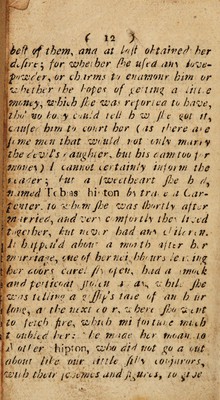 ( 12 )
best of them, and at last obtained her
desire; for whether she used any love-
powder, or charms to enamour him or
whether the hopes of getting a little
money, which she was reported to have,
tho' no body could tell how she got it,
cause him to court her (as there are
some men that would not only marry
the devil's daughter, but his dam too for
money) I cannot certainly inform the
reader; but a sweetheart she had,
named Tobias hipton by trade a Car-
penter, to whom she was shortly after
married, and very comfortly they lived
together, but never had any children.
It happen'd about a month after her
marriage, one of her neighbours leaving
her doors carelessly open, had a smock
and petticoat stolen away, while she
was telling a gossip's tale of an hour
long, at the next door, where she went
to fetch fire, which misfortune much
troubled her: he made her moan to
Mother hipton, who did not go about
about like our little silly conjurors,
with their schemes and figures, to give